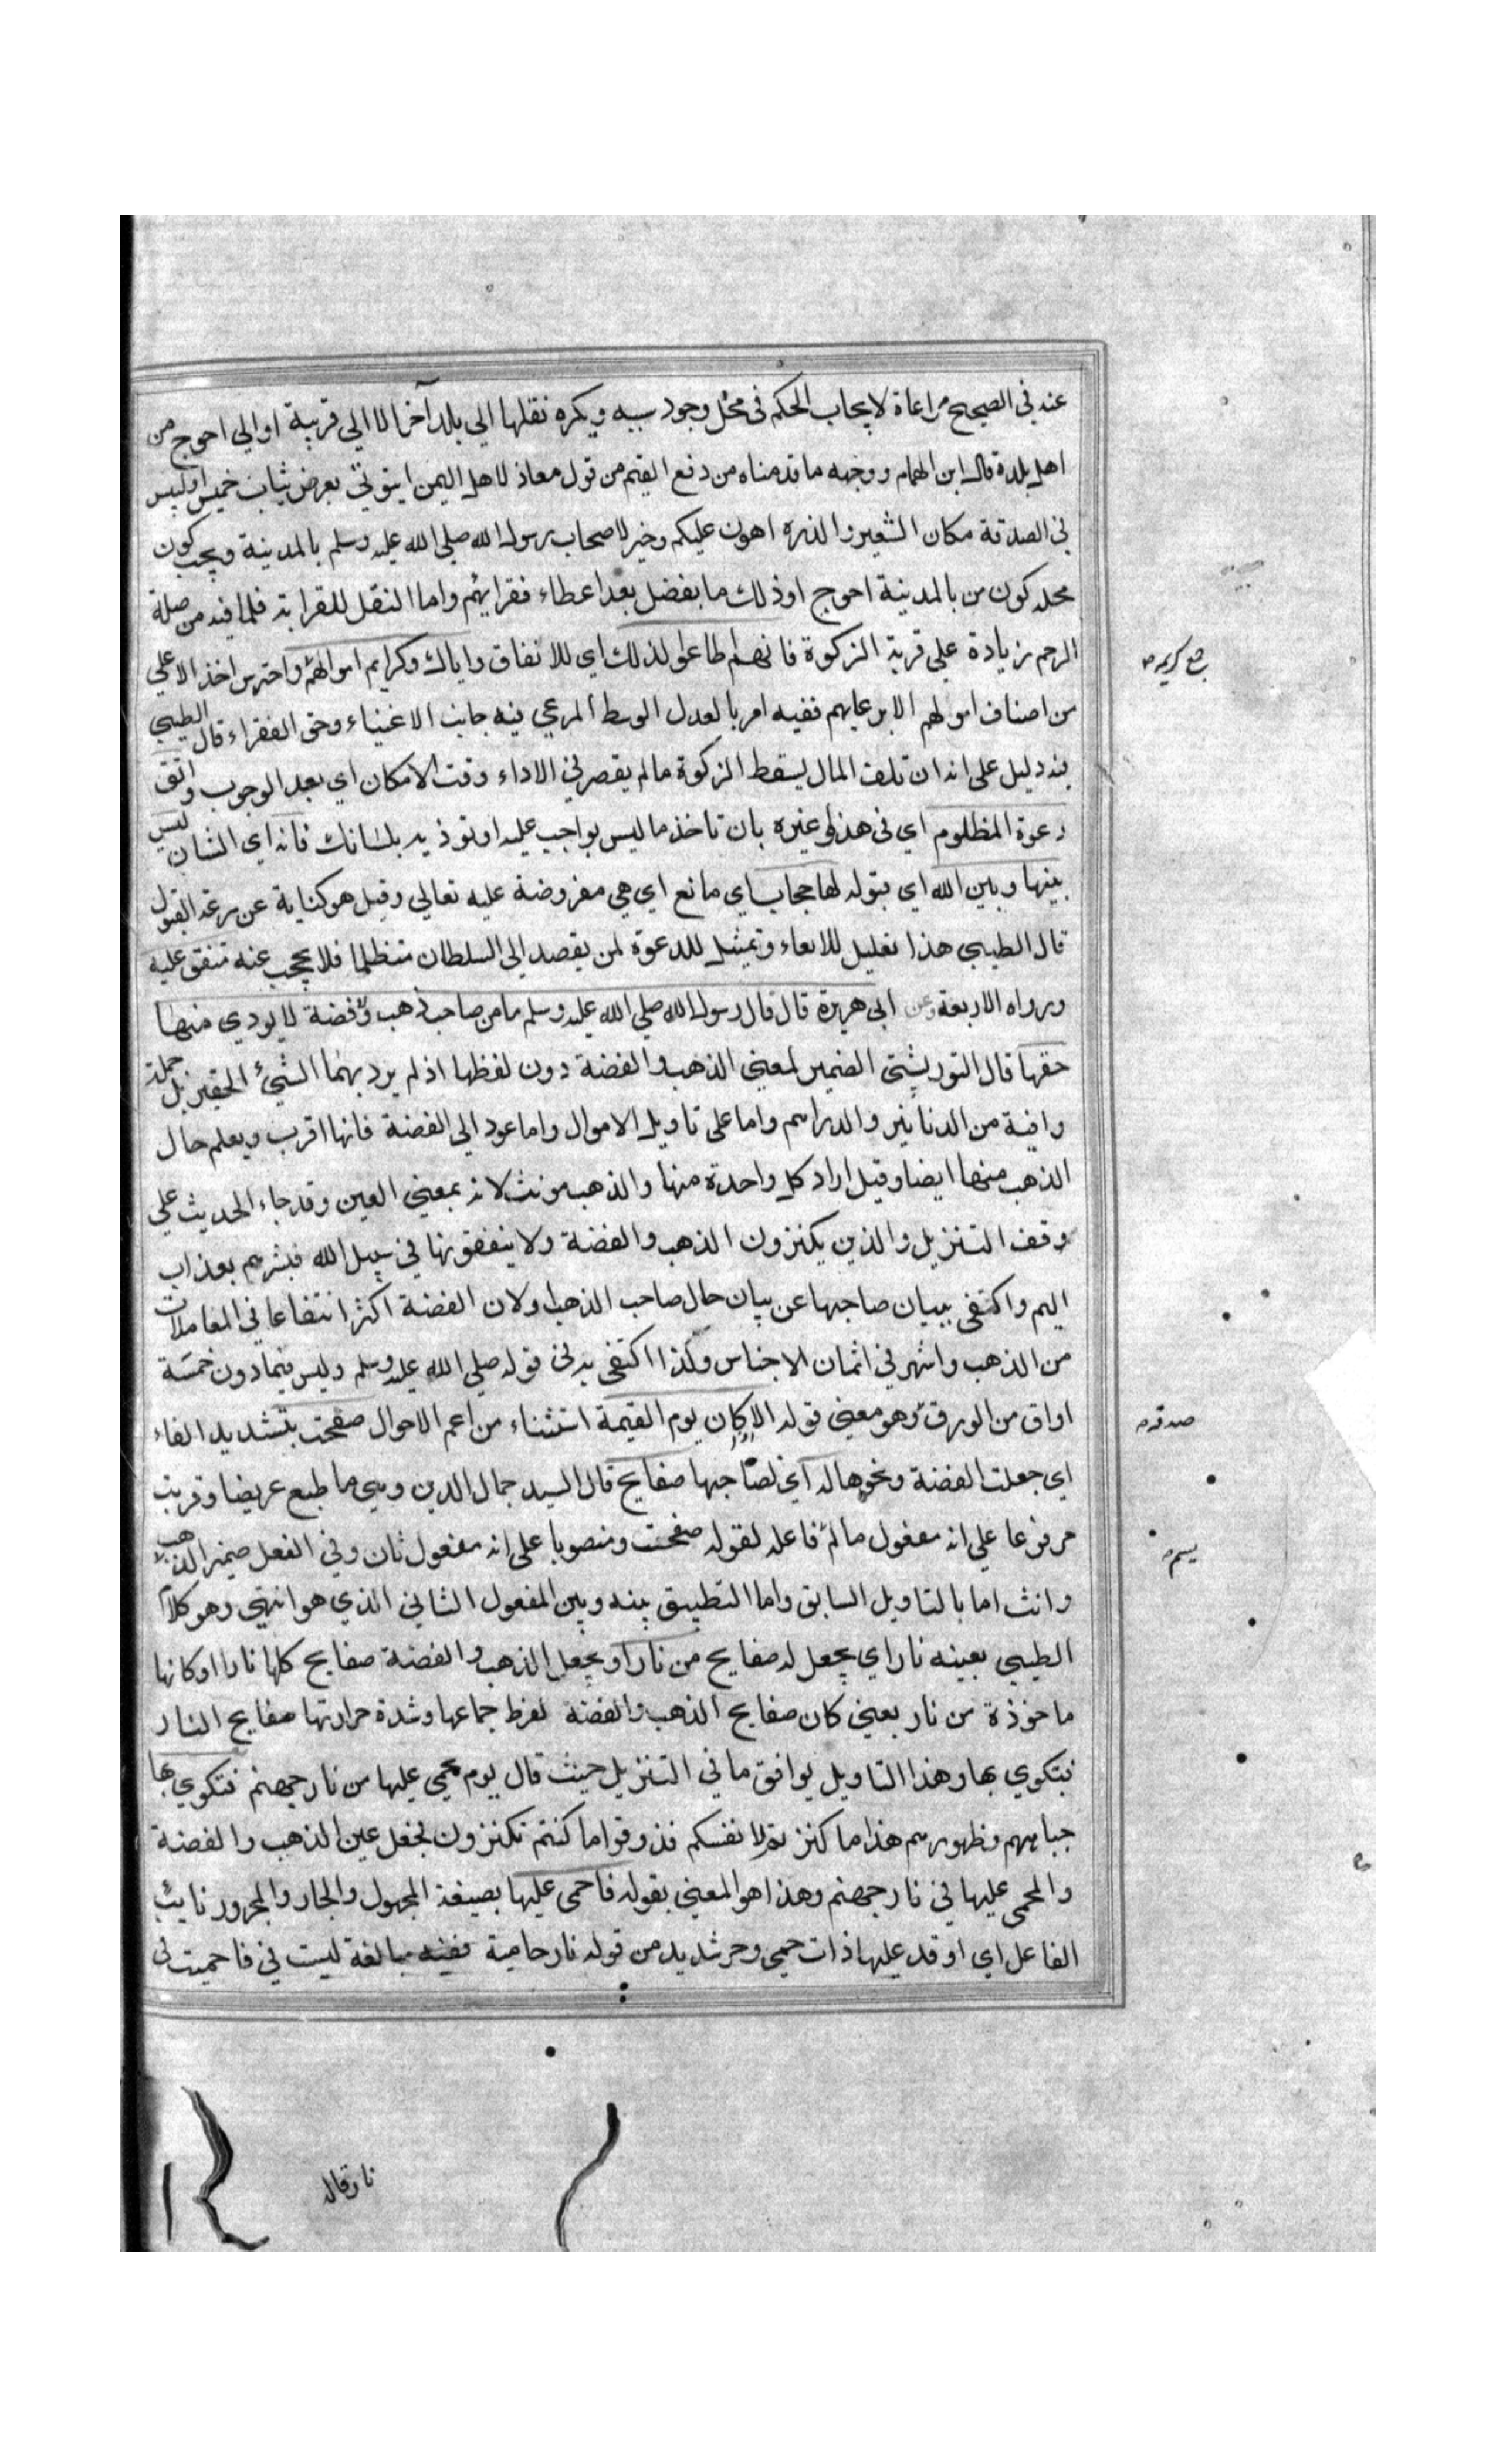 عنه في الصحيح مراعاة لايجاب الحكم في محل وجود سببه ويكره نقلها الي بلد آخر الا الي قريبه او الي احوج من
اهل بلدة قال ابن الهمام ووجهه ما قدمناه من دفع القيم من قول معاذ لاهل اليمن ايتوني بعرض ثياب خميس او لبيس
في الصدقة مكان الشعير والذره اهون عليكم وخير لاصحاب رسول الله صلي الله عليه وسلم بالمدينة ويجب كون
محله كون من بالمدينة احوج او ذلك ما يفضل بعد اعطاء فقرائهم واما النقل للقرابة فلما فيه من صلة
الرحم زيادة علي قربة الزكوة فان هم اطاعوا لذلك اي للانفاق واياك وكرايم اموالهم واحترس اخذ الاعلي
من اصناف اموالهم الا برعايهم ففيه امر بالعدل الوسط المرعي فيه جانب الاغنياء وحق الفقراء قال الطيبي
فيه دليل علي انه ان تلف المال يسقط الزكوة مالم يقصر في الاداء وقت الامكان اي بعد الوجوب واتق
دعوة المظلوم اي في هذا وغيره بان تاخذ ما ليس بواجب عليه او توذيه بلسانك فانه اي الشان ليس
بينها وبين الله اي قبوله لها حجاب اي مانع اي هي مفروضة عليه تعالي وقيل هو كناية عن سرعة القبول
قال الطيبي هذا تعليل للاتقاء وتمثيل للدعوة لمن يقصد الي السلطان متظلما فلا يحجب عنه متفق عليه
ورواه الاربعة وعن ابي هريرة قال قال رسول الله صلي الله عليه وسلم ما من صاحب ذهب ولا فضة لا يودي منها
حقها قال التوربشتي الضمير لمعني الذهب والفضة دون لفظها اذ لم يرد بهما الشيء الحقير بل جملة
وافية من الدنانير والدراهم واما علي تاويل الاموال واما عود الي الفضة فانها اقرب ويعلم حال
الذهب منها ايضا وقيل اراد كل واحدة منها والذهب مونث لانه بمعني العين وقد جاء الحديث علي
وقف التنزيل والذين يكنزون الذهب والفضة ولا ينفقونها في سبيل الله فبشرهم بعذاب
اليم واكتفي ببيان صاحبها عن بيان حال صاحب الذهب او لان الفضة اكثر انتفاعا في المعاملات
من الذهب واشهر في اثمان الاجناس ولذا اكتفي به في قوله صلي الله عليه وسلم وليس فيما دون خمسة
اواق من الورق وهو معني قوله الا كان يوم القيمة استثناء من اعم الاحوال صفحت بتشديد الفاء
اي جعلت الفضة ونحوها له اي لصاحبها صفايح قال السيد جمال الدين وهي ما طبع عريضا وقريت
مرفوعا علي انه مفعول مالم فاعله لقوله صفحت ومنصوبا علي انه مفعول ثان وفي الفعل ضمير الذهب
وانث اما بالتاويل السابق واما التطبيق بينه وبين المفعول الثاني الذي هو انتهي وهو كلام
الطيبي بعينه نار اي يجعل له صفايح من نار او يجعل الذهب والفضة صفايح كلها نارا او كانها
ماخوذة من نار يعني كان صفايح الذهب والفضة لفرط جماعها وشدة حرارتها صفايح النار
فتكوي بها وهذا التاويل يوافق ما في التنزيل حيث قال يوم يحمي عليها من نار جهنم فتكوي بها
جباههم وظهورهم هذا ما كنزتم لانفسكم فذوقوا ما كنتم تكنزون لجعل عين الذهب والفضة
والمحمي عليها في نار جهنم وهذا هو المعني بقوله فاحمي عليها بصيغة المجهول والجار والمجرور نايب
الفاعل اي اوقد عليها ذات حمي وحر شديد من قوله نار حامية ففيه مبالغة ليست في فاحميت في
جمع كريمه
صدقه
يسم
نار قال